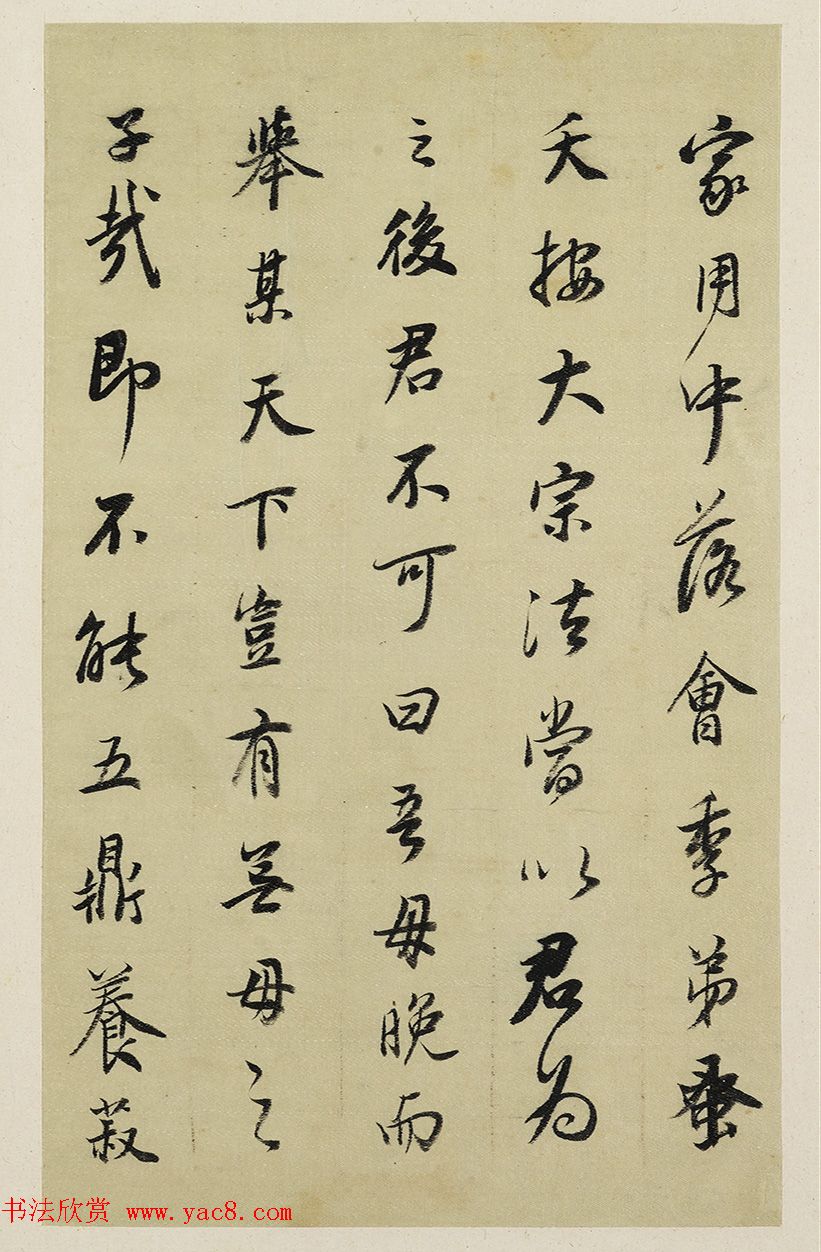 家用中落會季弟蚤
夭按大宗法當以君為
之後君不可曰吾母晚而
舉某天下豈有無母之
子哉即不能五鼎養菽
书法欣赏 www.yac8.com